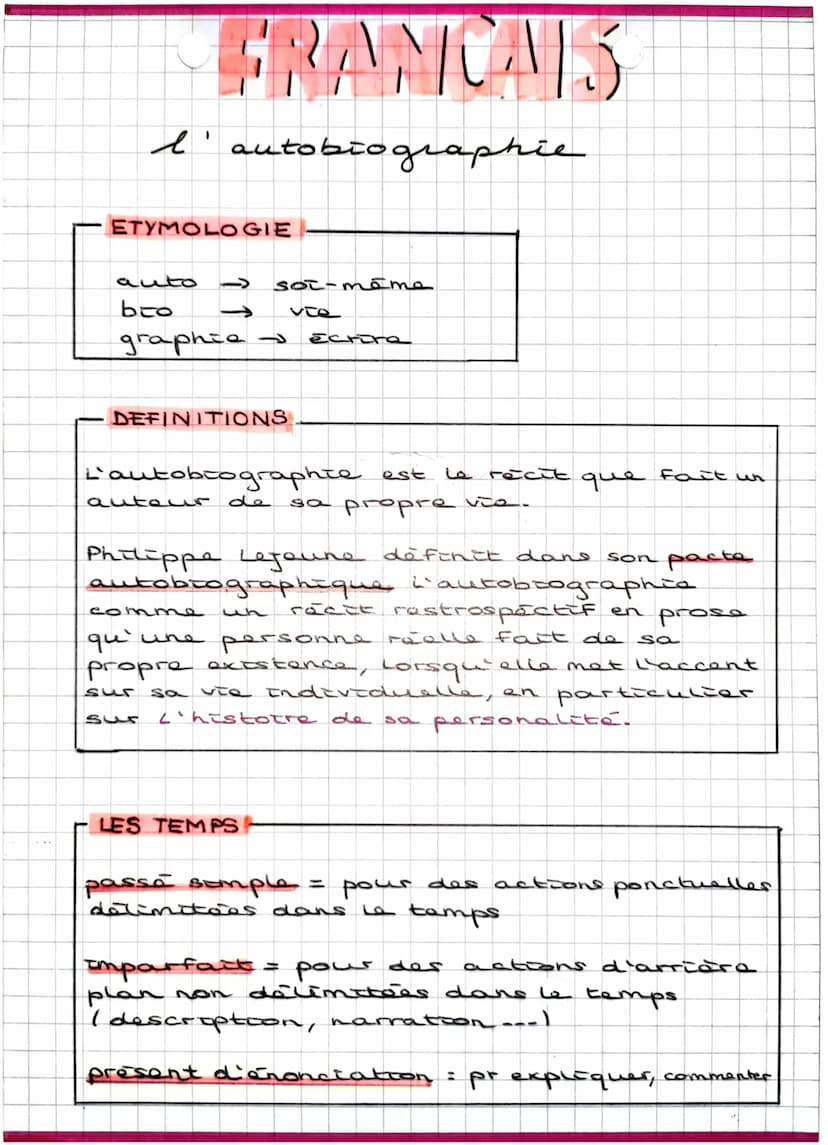 FRANCAIS
l'autobiographie
ETYMOLOGIE
auto → soi-même
bio → vie
graphie → écrire
DEFINITIONS
L'autobiographie est le récit que fait un
auteur de sa propre vie.
Philippe Lejeune définit dans son pacte
autobiographique l'autobiographie
comme un récit rastrospéctif en prose
qu'une personne réelle fait de sa
propre existence, lorsqu'elle met l'accent
sur sa vie individuelle, en particulier
sur l'histoire de sa personalité.
LES TEMPS
passé simple = pour des actions ponctuelles
délimitées dans le temps
imparfait = pour des actions d'arrière
plan non délimitées dans le temps
(description, narration ---)
présent d'énonciation = pr expliquer, commenter